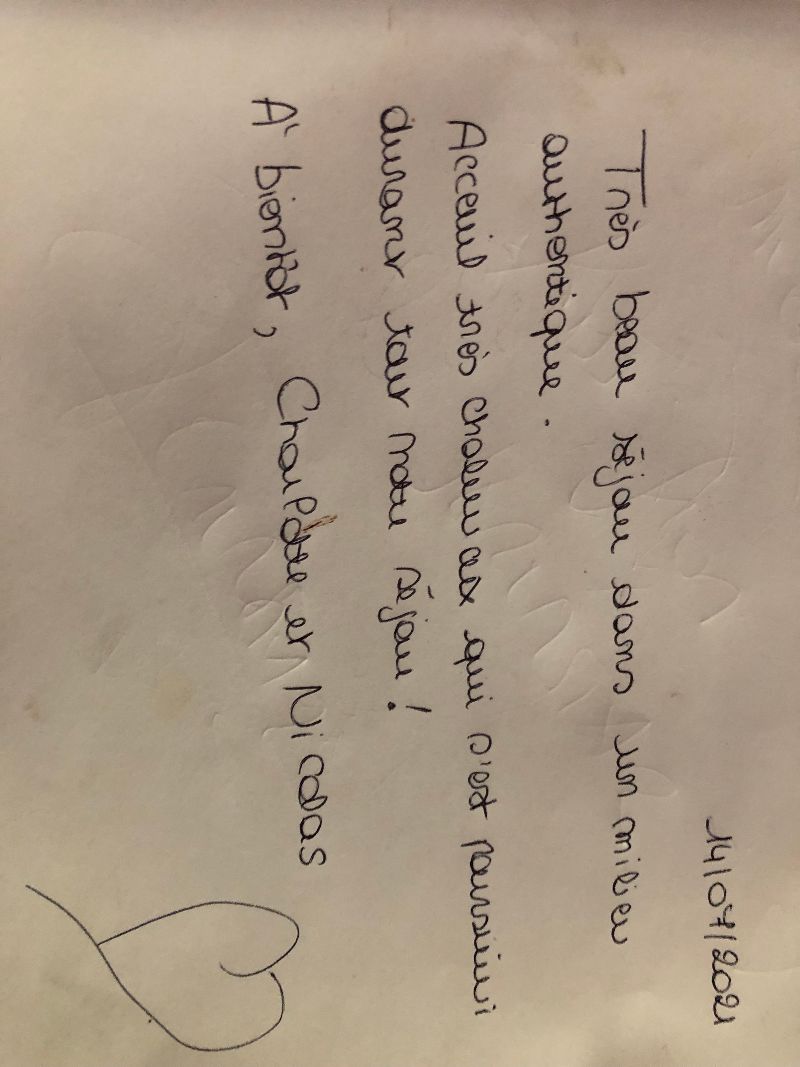 14/07/2021
Très beau séjour dans un milieu
authentique.
Acceuil très chaleureux qui s'est poursuivi
durant tout notre séjour !
A bientôt, Charlotte et Nicolas